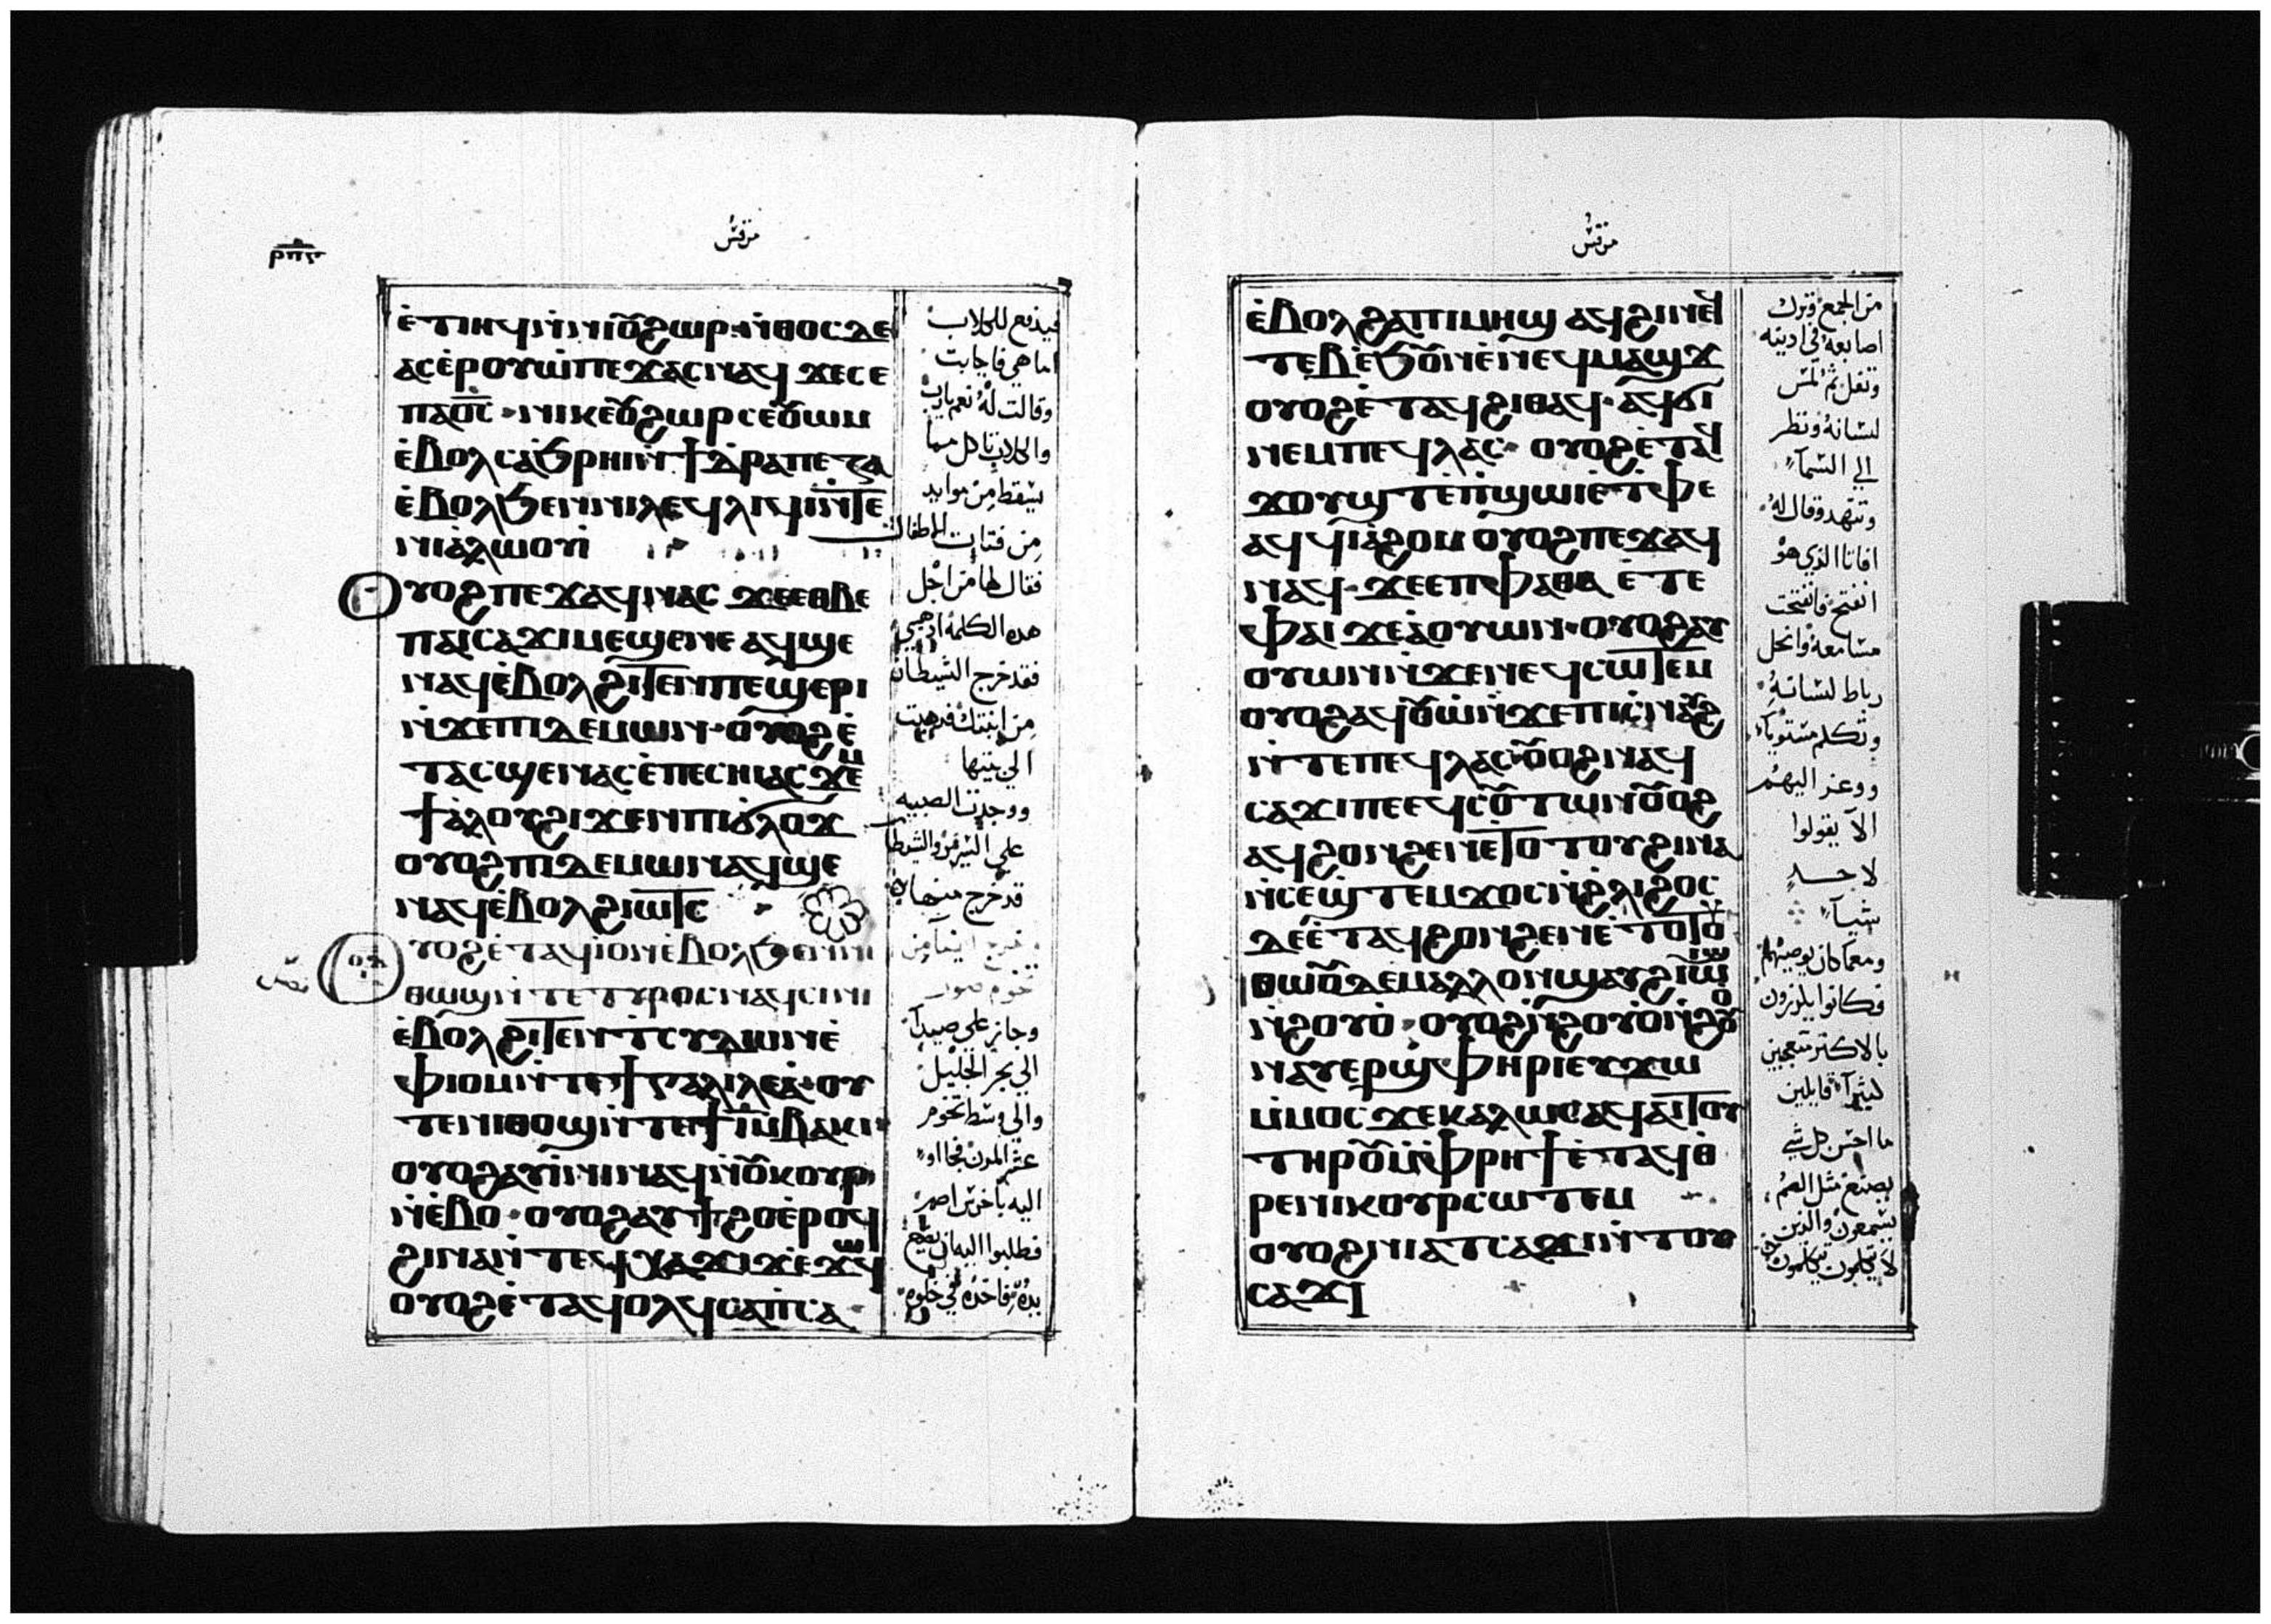 مرقس
ⲉ̀ⲧⲏⲓϥ ⲛ̀ⲛⲓⲟⲩϩⲱⲣ · ⲛ̀ⲑⲟⲥ ⲇⲉ
ⲁⲥⲉ̀ⲣⲟⲩⲱ̀ ⲡⲉϫⲁⲥ ⲛⲁϥ ϫⲉ ⲥⲉ
ⲡⲁⲟ̅ⲥ̅ · ⲛⲓⲕⲉⲟⲩϩⲱⲣ ⲥⲉⲟⲩⲱⲙ
ⲉ̀ⲃⲟⲗ ⲥⲁϧⲣⲏⲓ ⲛ̀ϯⲧ̀ⲣⲁⲡⲉⲍⲁ
ⲉ̀ⲃⲟⲗϧⲉⲛ ⲛⲓⲗⲉϥⲗⲓϥⲓ ⲛ̀ⲧⲉ
ⲛⲓⲁ̀ⲗⲱⲟⲩⲓ̀
ⲟⲩⲟϩ ⲡⲉϫⲁϥ ⲛⲁⲥ ϫⲉ ⲉⲑⲃⲉ
ⲡⲁⲓⲥⲁϫⲓ ⲙⲉϣⲉⲛⲉ ⲁϥϣⲉ
ⲛⲁϥ ⲉ̀ⲃⲟⲗϩⲓⲧⲉⲛ ⲡⲉϣⲉⲣⲓ
ⲛ̀ϫⲉ ⲡⲓⲇⲉⲙⲱⲛ · ⲟⲩⲟϩ ⲉ̀
ⲧⲁⲥϣⲉⲛⲁⲥ ⲉ̀ⲡⲉⲥⲏⲓ ⲁⲥϫⲉⲙ
ϯⲁ̀ⲗⲟⲩ ϩⲓϫⲉⲛ ⲡⲓϭⲗⲟϫ
ⲟⲩⲟϩ ⲡⲓⲇⲉⲙⲱⲛ ⲁϥϣⲉ
ⲛⲁϥ ⲉ̀ⲃⲟⲗϩⲓⲱⲧⲥ
ⲟⲩⲟϩ ⲉ̀ⲧⲁϥⲓ̀ ⲟⲛ ⲉ̀ⲃⲟⲗϧⲉⲛ ⲛⲓ
ⲑⲱϣ ⲛ̀ⲧⲉ ⲧⲩⲣⲟⲥ ⲛⲁϥⲥⲓⲛⲓ
ⲉ̀ⲃⲟⲗϩⲓⲧⲉⲛ ⲧ̀ⲥⲩⲇⲱⲛ ⲉ̀
ⲫⲓⲟⲙ ⲛ̀ⲧⲉ ϯⲅⲁⲗⲓⲗⲉⲁ̀ · ⲟⲩ
ⲧⲉⲛ ⲛⲓⲑⲟϣ ⲛ̀ⲧⲉ ϯⲓ̅ ⲙ̀ⲃⲁⲕⲓ
ⲟⲩⲟϩ ⲁⲩⲓ̀ⲛⲓ ⲛⲁϥ ⲛ̀ⲟⲩⲕⲟⲩⲣ
ⲛ̀ⲉ̀ⲃⲟ · ⲟⲩⲟϩ ⲁⲩϯϩⲟ ⲉ̀ⲣⲟϥ
ϩⲓⲛⲁ ⲛ̀ⲧⲉϥⲭⲁ ϫⲓϫ ⲉ̀ϫⲱϥ
ⲟⲩⲟϩ ⲉ̀ⲧⲁϥⲟⲗϥ ⲥⲁⲡ̀ⲥⲁ
فيدفع للكلاب
اما هي فاجابت
وقالت له نعم يارب
والكلاب تاكل مما
يسقط من موايد
من فتات الاطفال
فقال لها من اجل
هذه الكلمة اذهبي
فقد خرج الشيطان
من ابنتك فذهبت
الي بيتها
ووجدت الصبيه
علي السرير والشيطان
قد خرج منها
وخرج ايضا من
تخوم صور
وجاز علي صيدا
الي بحر الجليل
والي وسط تخوم
عشر المدن فجااو
اليه باخرس اصم
فطلبوا اليه ان يضع
يده فاخذه في خلوه
مرقس
ⲉ̀ⲃⲟⲗϩⲁ ⲡⲓⲙⲏϣ ⲁϥϩⲓ ⲛⲉϥ
ⲧⲉⲃ ⲉ̀ϧⲟⲩⲛ ⲉ̀ⲛⲉϥⲙⲁϣϫ
ⲟⲩⲟϩ ⲉ̀ⲧⲁϥϩⲓⲑⲁϥ · ⲁϥϭⲓ
ⲛⲉⲙ ⲡⲉϥⲗⲁⲥ · ⲟⲩⲟϩ ⲉ̀ⲧⲁϥ
ϫⲟⲩϣⲧ ⲉ̀ⲡ̀ϣⲱⲓ ⲉ̀ⲧ̀ⲫⲉ
ⲁϥϥⲓⲁ̀ϩⲟⲙ ⲟⲩⲟϩ ⲡⲉϫⲁϥ
ⲛⲁϥ · ϫⲉ ⲉⲡⲫⲁⲑⲁ ⲉ̀ⲧⲉ
ⲫⲁⲓ ϫⲉ ⲁ̀ⲟⲩⲱⲛ · ⲟⲩⲟϩ ⲁⲩ
ⲟⲩⲱⲛ ⲛ̀ϫⲉ ⲛⲉϥⲥⲱⲧⲉⲙ
ⲟⲩⲟϩ ⲁϥⲟⲩⲱⲛ ⲛ̀ϫⲉ ⲡⲓⲥ̀ⲛⲁⲩϩ
ⲛ̀ⲧⲉ ⲡⲉϥⲗⲁⲥ ⲟⲩⲟϩ ⲛⲁϥ
ⲥⲁϫⲓ ⲡⲉ ⲉϥⲥⲟⲩⲧⲱⲛ ⲟⲩⲟϩ
ⲁϥϩⲟⲛϩⲉⲛ ⲉⲧⲟⲧⲟⲩ ϩⲓⲛⲁ
ⲛ̀ⲥⲉϣ̀ⲧⲉⲙϫⲟⲥ ⲛ̀ϩ̀ⲗⲓ ϩⲟⲥ
ⲇⲉ ⲉ̀ⲧⲁϥϩⲟⲛϩⲉⲛ ⲉ̀ⲧⲟⲧⲟⲩ
ⲛ̀ⲑⲱⲟⲩ ⲇⲉ ⲙⲁⲗⲗⲟⲛ ϣⲁⲩϩⲓⲱⲓϣ
ⲛ̀ϩⲟⲩⲟ̀ · ⲟⲩⲟϩ ⲛ̀ϩⲟⲩⲟ̀ ⲛ̀ϩⲟⲩⲟ
ⲛⲁⲩⲉⲣϣ̀ⲫⲏⲣⲓ ⲉⲩϫⲱ
ⲙ̀ⲙⲟⲥ ϫⲉ ⲕⲁⲗⲱⲥ ⲁϥⲁⲓⲧⲟⲩ
ⲧⲏⲣⲟⲩ ⲙ̀ⲫ̀ⲣⲏϯ ⲉ̀ⲧⲁϥⲑ
ⲣⲉ ⲛⲓⲕⲟⲩⲣ ⲥⲱⲧⲉⲙ
ⲟⲩⲟϩ ⲛⲓⲁⲧⲥⲁϫⲓ ⲛ̀ⲧⲟⲩ
ⲥⲁϫⲓ
من الجمع وترك
اصابعه في اذنيه
وتفل ثم لمس
لسانه ونظر
الي السما
وتنهد وقال له
افاتا الذي هو
انفتح فانفتحت
مسامعه وانحل
رباط لسانه
وتكلم مستويا
ووعز اليهم
الا يقولوا
لاحد
شيا
ومعما كان يوصيهم
فكانوا يكرزون
بالاكثر متعجبين
كثيرا قايلين
ما احسن كل شي
يصنع مثل الصم
يسمعون والذين
لا يتكلمون يتكلمون